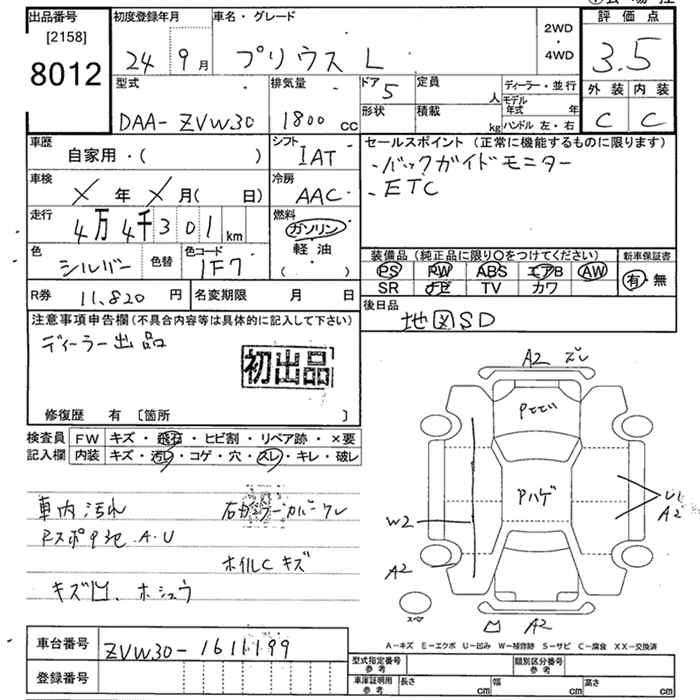 出品番号 初度登録年月 車名・グレード 2WD・4WD 評価点
[2158]
8012 24 9月 プリウス L 3.5
型式 排気量 ドア 5 定員 人 ディーラー・並行 外装 内装
DAA-ZVW30 1800 cc 形状 積載 kg モデル年式 年 ハンドル 左・右 C C
車歴 シフト セールスポイント (正常に機能するものに限ります)
自家用・( ) IAT ・バックガイドモニター
車検 冷房 ・ETC
X 年 X 月( 日) AAC
走行 燃料
4万4千301 km ガソリン
軽油
( )
色 シルバー 色替 色コード 1F7 装備品 (純正品に限り○をつけてください) 新車保証書
PS PW ABS エアB AW 有・無
SR ナビ TV カワ
R券 11,820 円 名変期限 月 日 後日品
地図SD
注意事項申告欄 (不具合内容等は具体的に記入して下さい)
ディーラー出品
初出品
修復歴 有 [箇所 ]
検査員 FW キズ・飛石・ヒビ割・リペア跡・×要
記入欄 内装 キズ・汚レ・コゲ・穴・スレ・キレ・破レ
A2 ズレ
Pハゲ
W2
A2
A2
スペア
A2
車内汚れ
A.U
ホイルCキズ
キズ凹、ホシュウ
A-キズ E-エクボ U-凹み W-補修跡 S-サビ C-腐食 XX-交換済
車台番号 ZVW30-1611199
登録番号
型式指定番号 参考 類別区分番号 参考
車庫証明用 参考 長さ cm 幅 cm 高さ cm